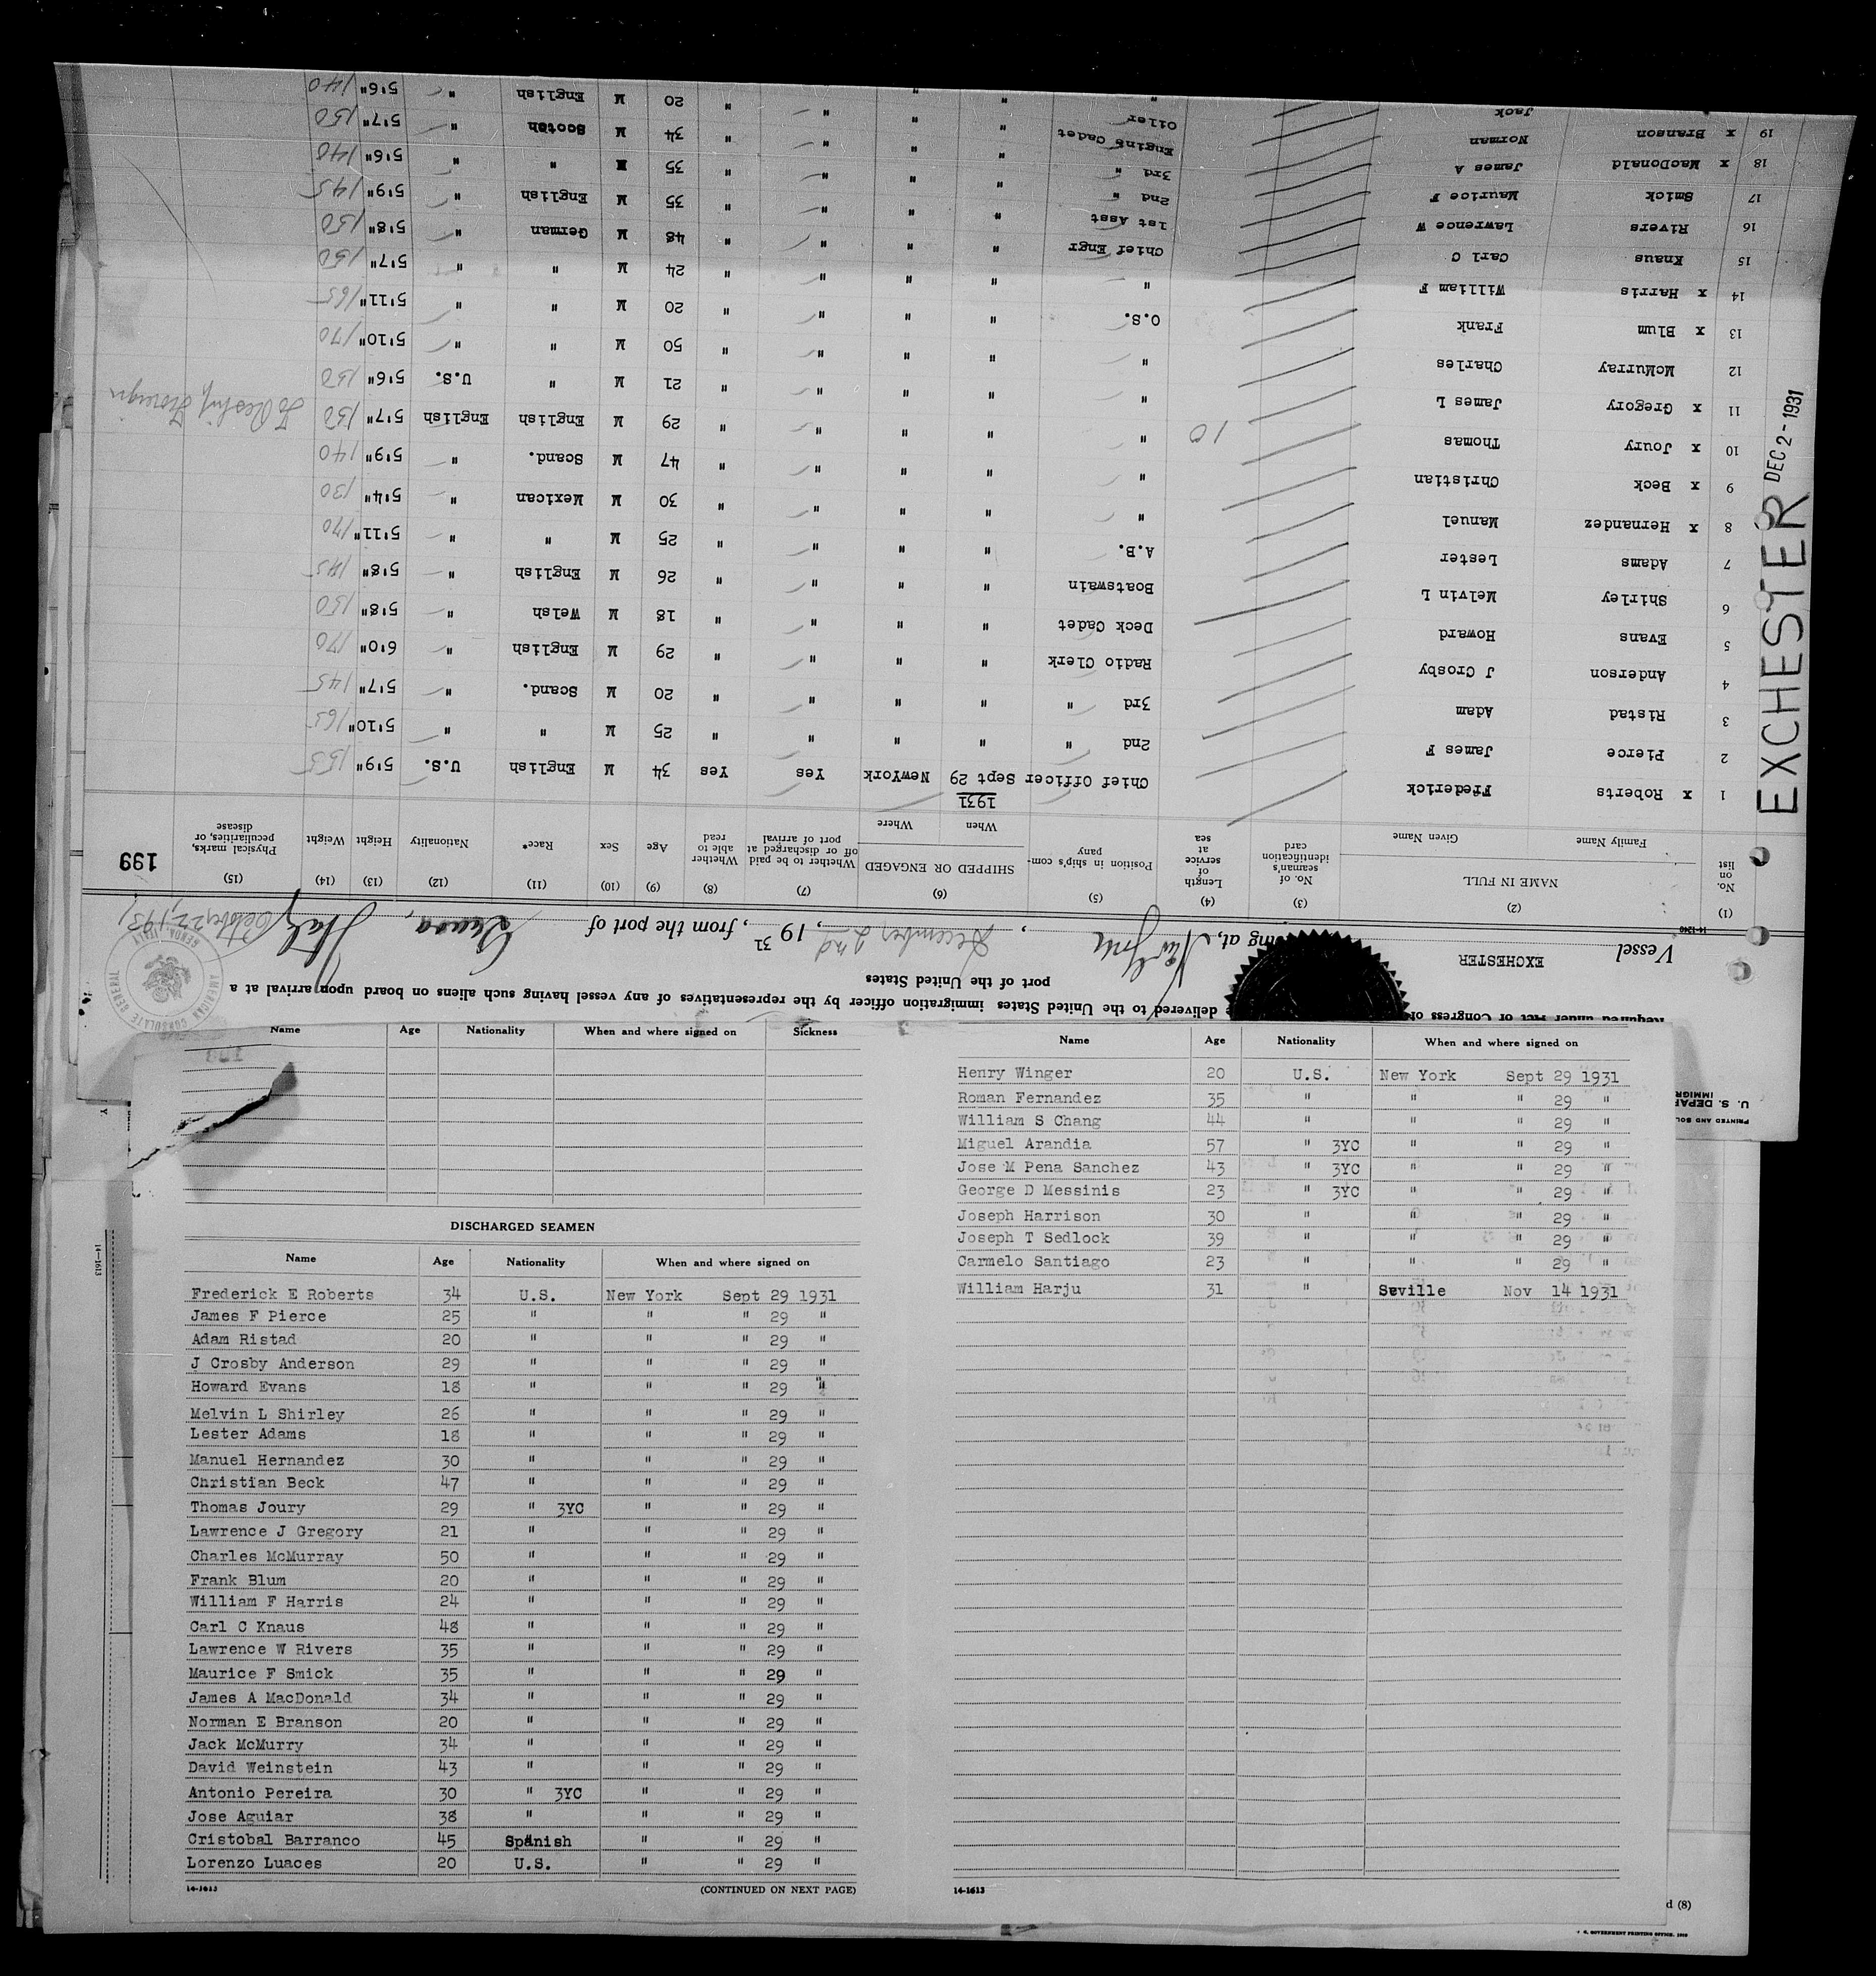 Required under Act of Congress of
delivered to the United States immigration officer by the representatives of any vessel having such aliens on board upon arrival at a
port of the United States
AMERICAN CONSULATE GENERAL
GENOA, ITALY
Vessel EXCHESTER
ing at, New York, December 2nd, 1931, from the port of Genoa, Italy October 22, 1931
14-1240
199
(1) (2) (3) (4) (5) (6) (7) (8) (9) (10) (11) (12) (13) (14) (15)
No. on list NAME IN FULL No. of seaman's identification card Length of service at sea Position in ship's company SHIPPED OR ENGAGED Whether to be paid off or discharged at port of arrival Whether able to read Age Sex Race* Nationality Height Weight Physical marks, peculiarities, or disease
Family Name Given Name When Where
1931
1 x Roberts Frederick Chief Officer Sept 29 NewYork Yes Yes 34 M English U.S. 5'9" 155
2 Pierce James F 2nd " " " " " 25 M " " 5'10" 165
3 Ristad Adam 3rd " " " " " 20 M Scand. " 5'7" 145
4 Anderson J Crosby Radio Clerk " " " " 29 M English " 6'0" 170
5 Evans Howard Deck Cadet " " " " 18 M Welsh " 5'8" 150
6 Shirley Melvin L Boatswain " " " " 26 M English " 5'8" 145
7 Adams Lester A.B. " " " " 25 M " " 5'11" 170
8 x Hernandez Manuel " " " " " 30 M Mexican " 5'4" 130
9 x Beck Christian " " " " " 47 M Scand. " 5'9" 140
10 x Joury Thomas 10 " " " " " 29 M English English 5'7" 130 To Reship Foreign
11 x Gregory James L " " " " " 21 M " U.S. 5'6" 130
12 McMurray Charles " " " " " 50 M " " 5'10" 170
13 x Blum Frank O.S. " " " " 20 M " " 5'11" 165
14 x Harris William F " " " " " 24 M " " 5'7" 150
15 Knaus Carl C Chief Engr " " " " 48 M German " 5'8" 150
16 Rivers Lawrence W 1st Asst " " " " 35 M English " 5'9" 145
17 Smick Maurice F 2nd " " " " " 35 M " " 5'6" 140
18 x MacDonald James A 3rd " " " " " 34 M Scotch " 5'7" 150
19 x Branson Norman Engine Cadet " " " " 20 M English " 5'6" 140
Jack Oiler
EXCHESTER DEC 2 - 1931
U. S. DEPAR
IMMIGR
PRINTED AND SOL
Name Age Nationality When and where signed on Sickness
DISCHARGED SEAMEN
Name Age Nationality When and where signed on
Frederick E Roberts 34 U.S. New York Sept 29 1931
James F Pierce 25 " " " 29 "
Adam Ristad 20 " " " 29 "
J Crosby Anderson 29 " " " 29 "
Howard Evans 18 " " " 29 "
Melvin L Shirley 26 " " " 29 "
Lester Adams 18 " " " 29 "
Manuel Hernandez 30 " " " 29 "
Christian Beck 47 " " " 29 "
Thomas Joury 29 " 3YC " " 29 "
Lawrence J Gregory 21 " " " 29 "
Charles McMurray 50 " " " 29 "
Frank Blum 20 " " " 29 "
William F Harris 24 " " " 29 "
Carl C Knaus 48 " " " 29 "
Lawrence W Rivers 35 " " " 29 "
Maurice F Smick 35 " " " 29 "
James A MacDonald 34 " " " 29 "
Norman E Branson 20 " " " 29 "
Jack McMurry 34 " " " 29 "
David Weinstein 43 " " " 29 "
Antonio Pereira 30 " 3YC " " 29 "
Jose Aguiar 38 " " " 29 "
Cristobal Barranco 45 Spanish " " 29 "
Lorenzo Luaces 20 U.S. " " 29 "
14-1613 (CONTINUED ON NEXT PAGE)
Name Age Nationality When and where signed on
Henry Winger 20 U.S. New York Sept 29 1931
Roman Fernandez 35 " " " 29 "
William S Chang 44 " " " 29 "
Miguel Arandia 57 " 3YC " " 29 "
Jose M Pena Sanchez 43 " 3YC " " 29 "
George D Messinis 23 " 3YC " " 29 "
Joseph Harrison 30 " " " 29 "
Joseph T Sedlock 39 " " " 29 "
Carmelo Santiago 23 " " " 29 "
William Harju 31 " Seville Nov 14 1931
14-1613
d (8)
GOVERNMENT PRINTING OFFICE
14-1613